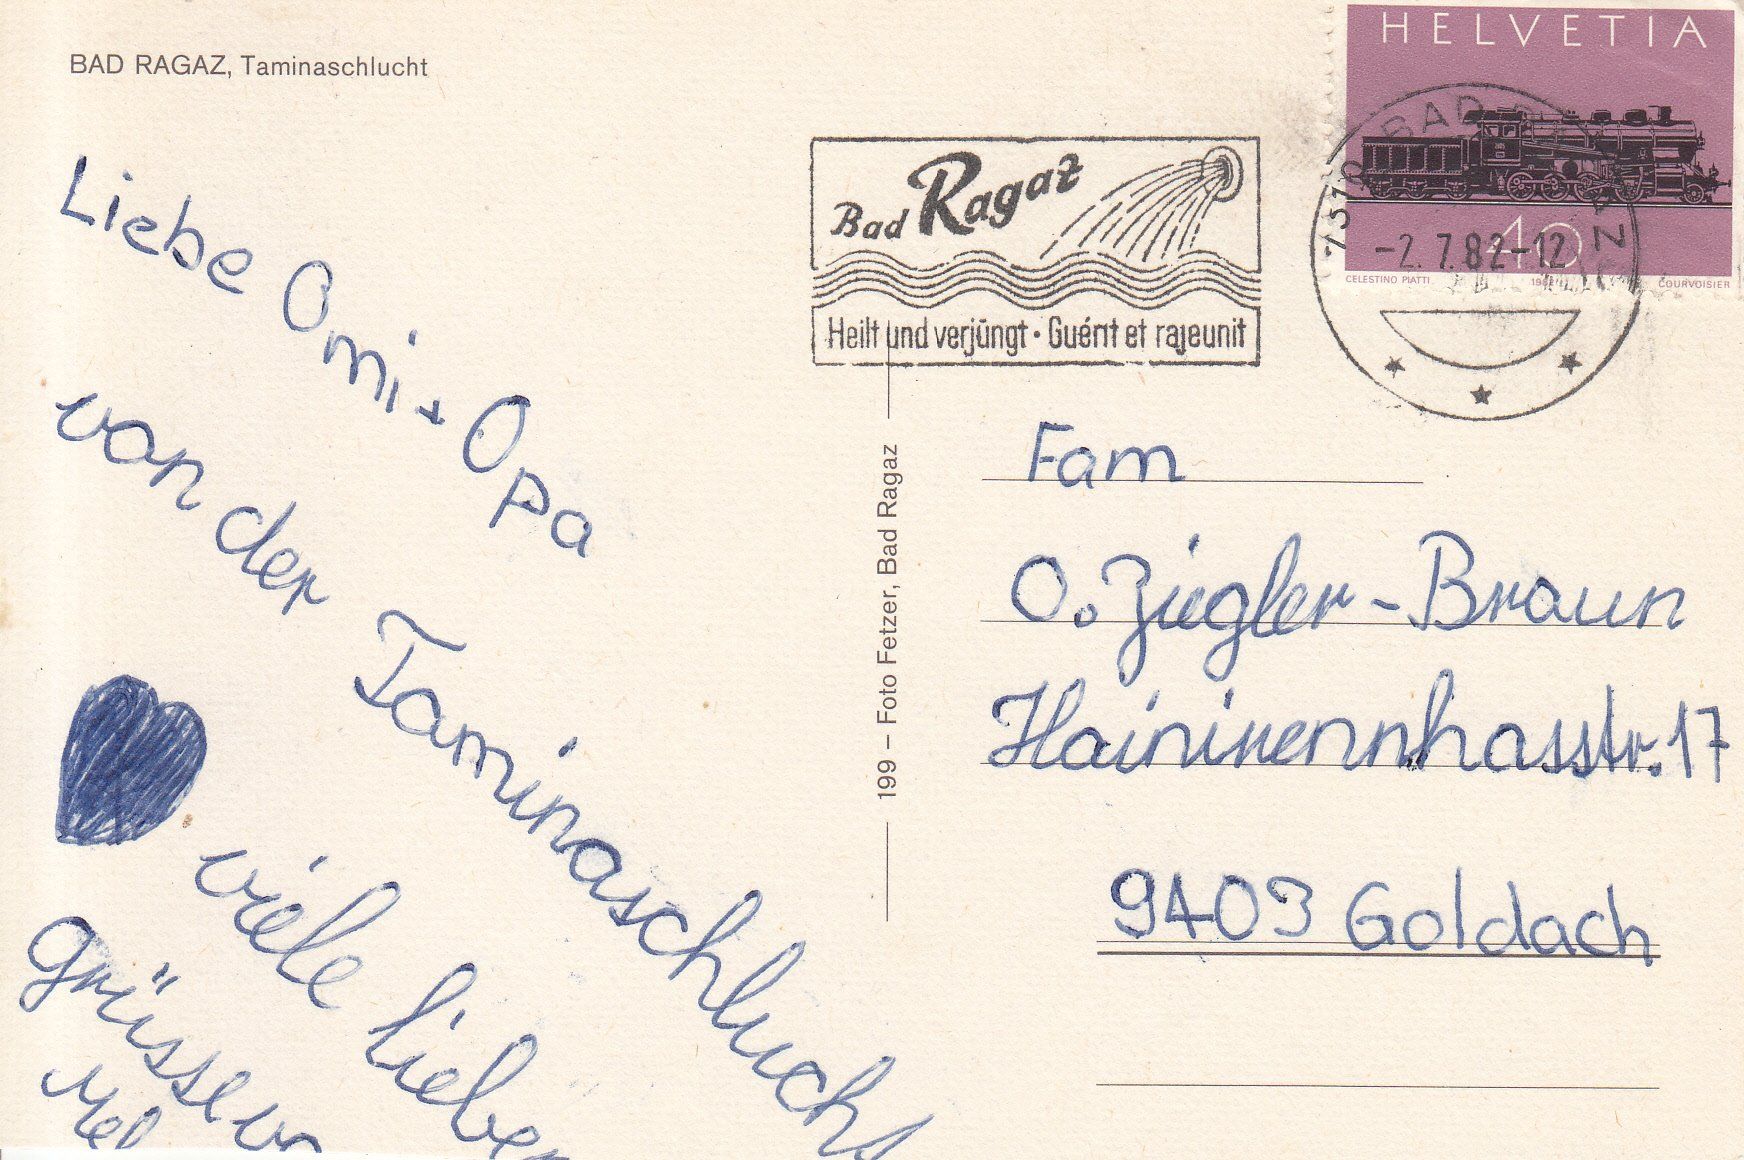 BAD RAGAZ, Taminaschlucht
Liebe Omi + Opa
von der Taminaschlucht
viele lieben
grüssen
Mel
199 – Foto Fetzer, Bad Ragaz
Bad Ragaz
Heilt und verjüngt · Guérit et rajeunit
HELVETIA
40
CELESTINO PIATTI 1982 COURVOISIER
7310 BAD RAGAZ
-2.7.82-12
Fam
O. Ziegler-Braun
Haininennhasstr. 17
9403 Goldach